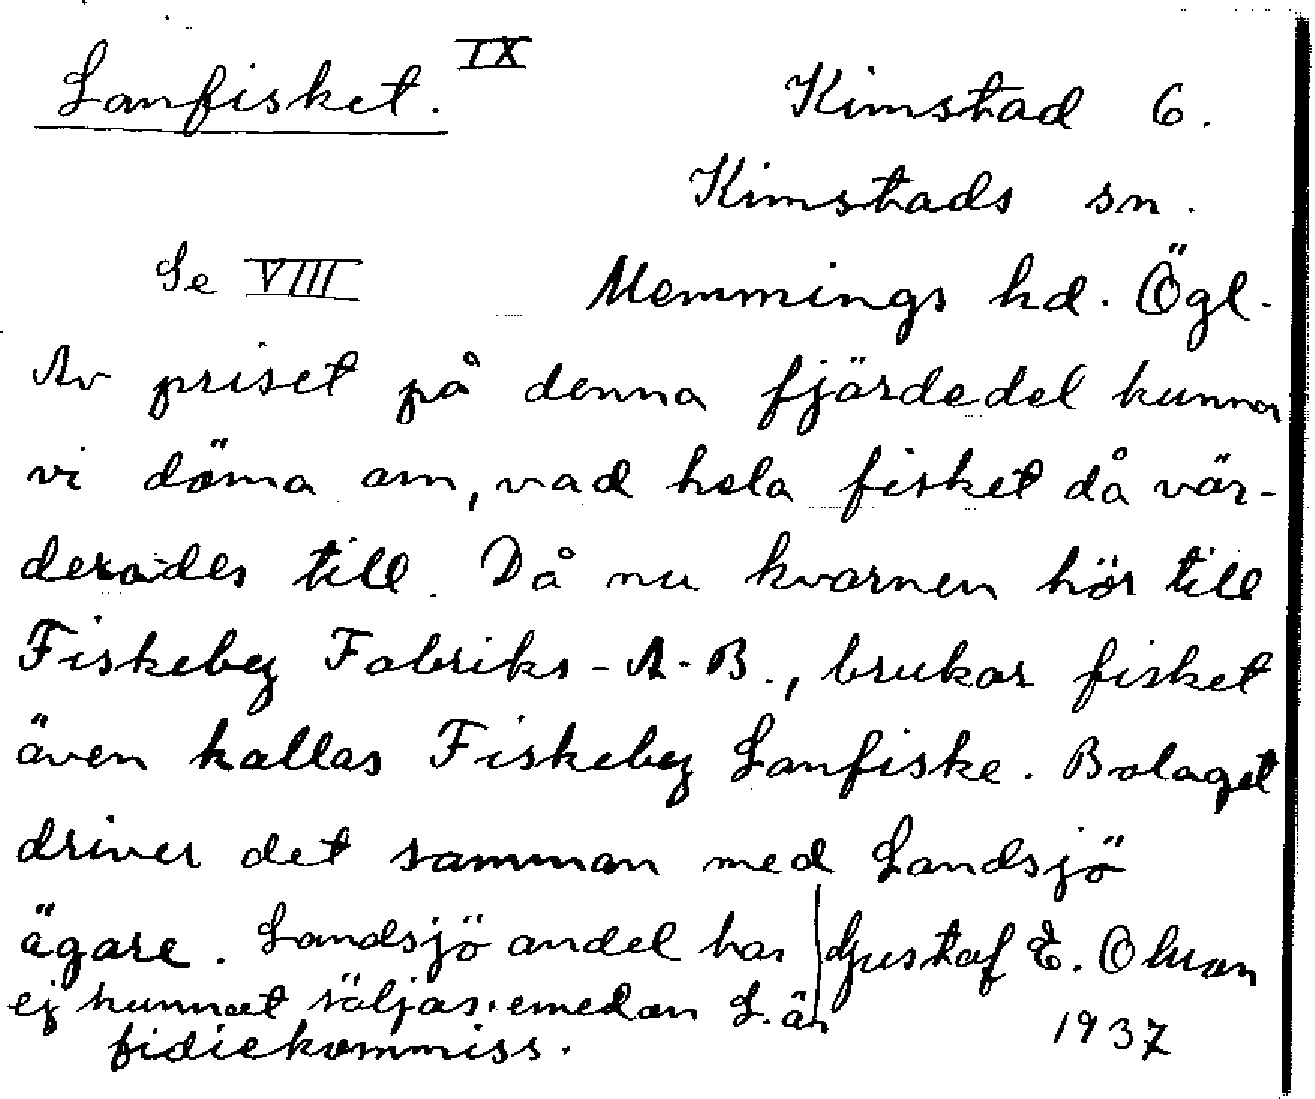 Lanfisket. IX
Kimstad 6.
Kimstads sn.
Se VIII
Memmings hd. Ögl.
Av priset på denna fjärdedel kunna
vi döma om, vad hela fisket då vär-
derades till. Då nu kvarnen hör till
Fiskeby Fabriks-A.-B., brukar fisket
även kallas Fiskeby Lanfiske. Bolaget
driver det samman med Landsjö
ägare. Landsjö andel har
ej kunnat säljas, emedan L. är
fideikommiss.
Gustaf E. Olsson
1937